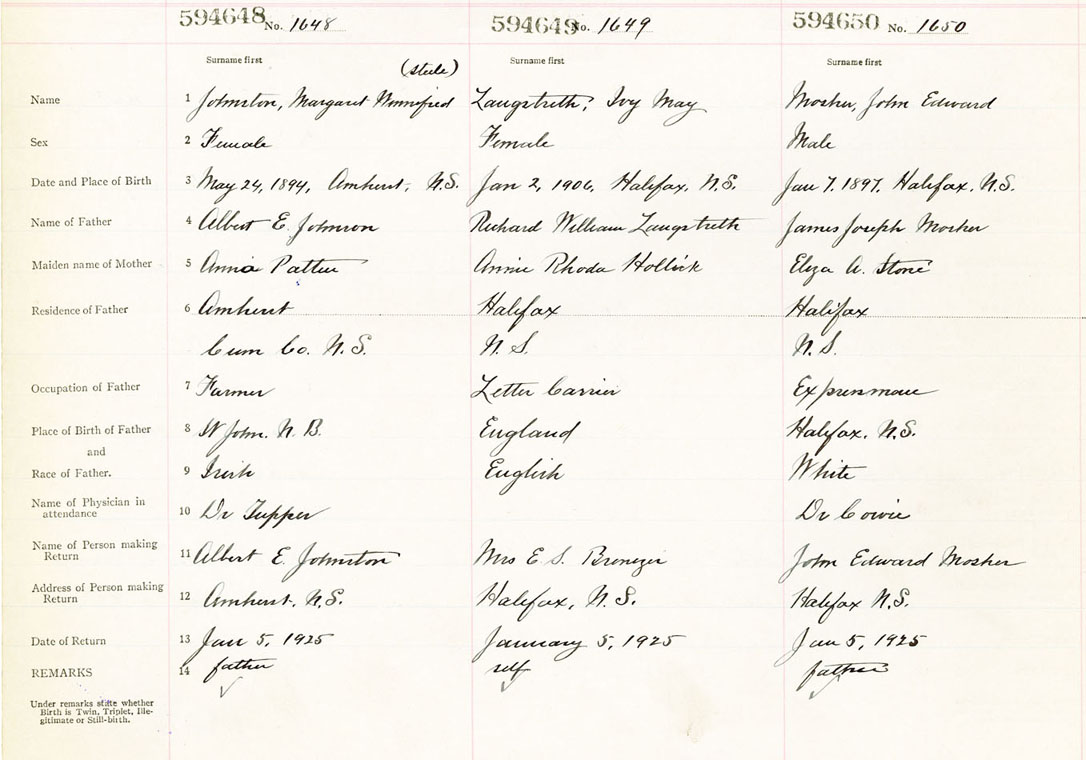 594648 No. 1648 594649 No. 1649 594650 No. 1650
Surname first (Steele) Surname first Surname first
Name 1 Johnston, Margaret Winnifred Langstreth, Ivy May Mosher, John Edward
Sex 2 Female Female Male
Date and Place of Birth 3 May 24, 1894, Amherst, N.S. Jan 2, 1906, Halifax, N.S. Jan 7, 1897, Halifax, N.S.
Name of Father 4 Albert E. Johnson Richard William Langstreth James Joseph Mosher
Maiden name of Mother 5 Annie Eliza A. Stone Annie Rhoda Hollick
Residence of Father 6 Amherst Halifax Halifax
Cum Co. N.S. N.S. N.S.
Occupation of Father 7 Farmer Letter Carrier Expressman
Place of Birth of Father 8 St John. N.B. England Halifax, N.S.
and
Race of Father. 9 Irish English White
Name of Physician in
attendance 10 Dr Tupper Dr Cowie
Name of Person making
Return 11 Albert E. Johnston Mrs E. S. John Edward Mosher
Address of Person making
Return 12 Amherst, N.S. Halifax, N.S. Halifax N.S.
Date of Return 13 Jan 5, 1925 January 5, 1925 Jan 5, 1925
REMARKS 14 father self father
Under remarks state whether
Birth is Twin, Triplet, Ille-
gitimate or Still-birth.